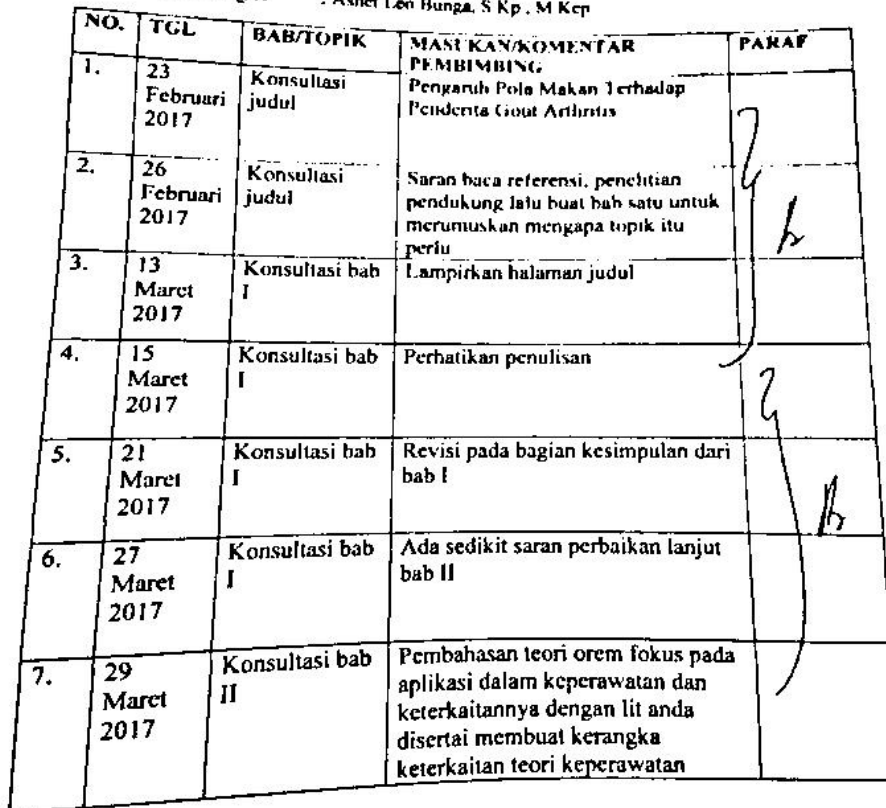 Bunga, S Kp , M Kep
NO. TGL BAB/TOPIK MASUKAN/KOMENTAR PEMBIMBING PARAF
1. 23 Februari 2017 Konsultasi judul Pengaruh Pola Makan Terhadap
Penderita Gout Arthritis
2. 26 Februari 2017 Konsultasi judul Saran baca referensi, penelitian
pendukung lalu buat bab satu untuk
merumuskan mengapa topik itu
perlu
3. 13 Maret 2017 Konsultasi bab I Lampirkan halaman judul
4. 15 Maret 2017 Konsultasi bab I Perhatikan penulisan
5. 21 Maret 2017 Konsultasi bab I Revisi pada bagian kesimpulan dari
bab I
6. 27 Maret 2017 Konsultasi bab I Ada sedikit saran perbaikan lanjut
bab II
7. 29 Maret 2017 Konsultasi bab II Pembahasan teori orem fokus pada
aplikasi dalam keperawatan dan
keterkaitannya dengan lit anda
disertai membuat kerangka
keterkaitan teori keperawatan